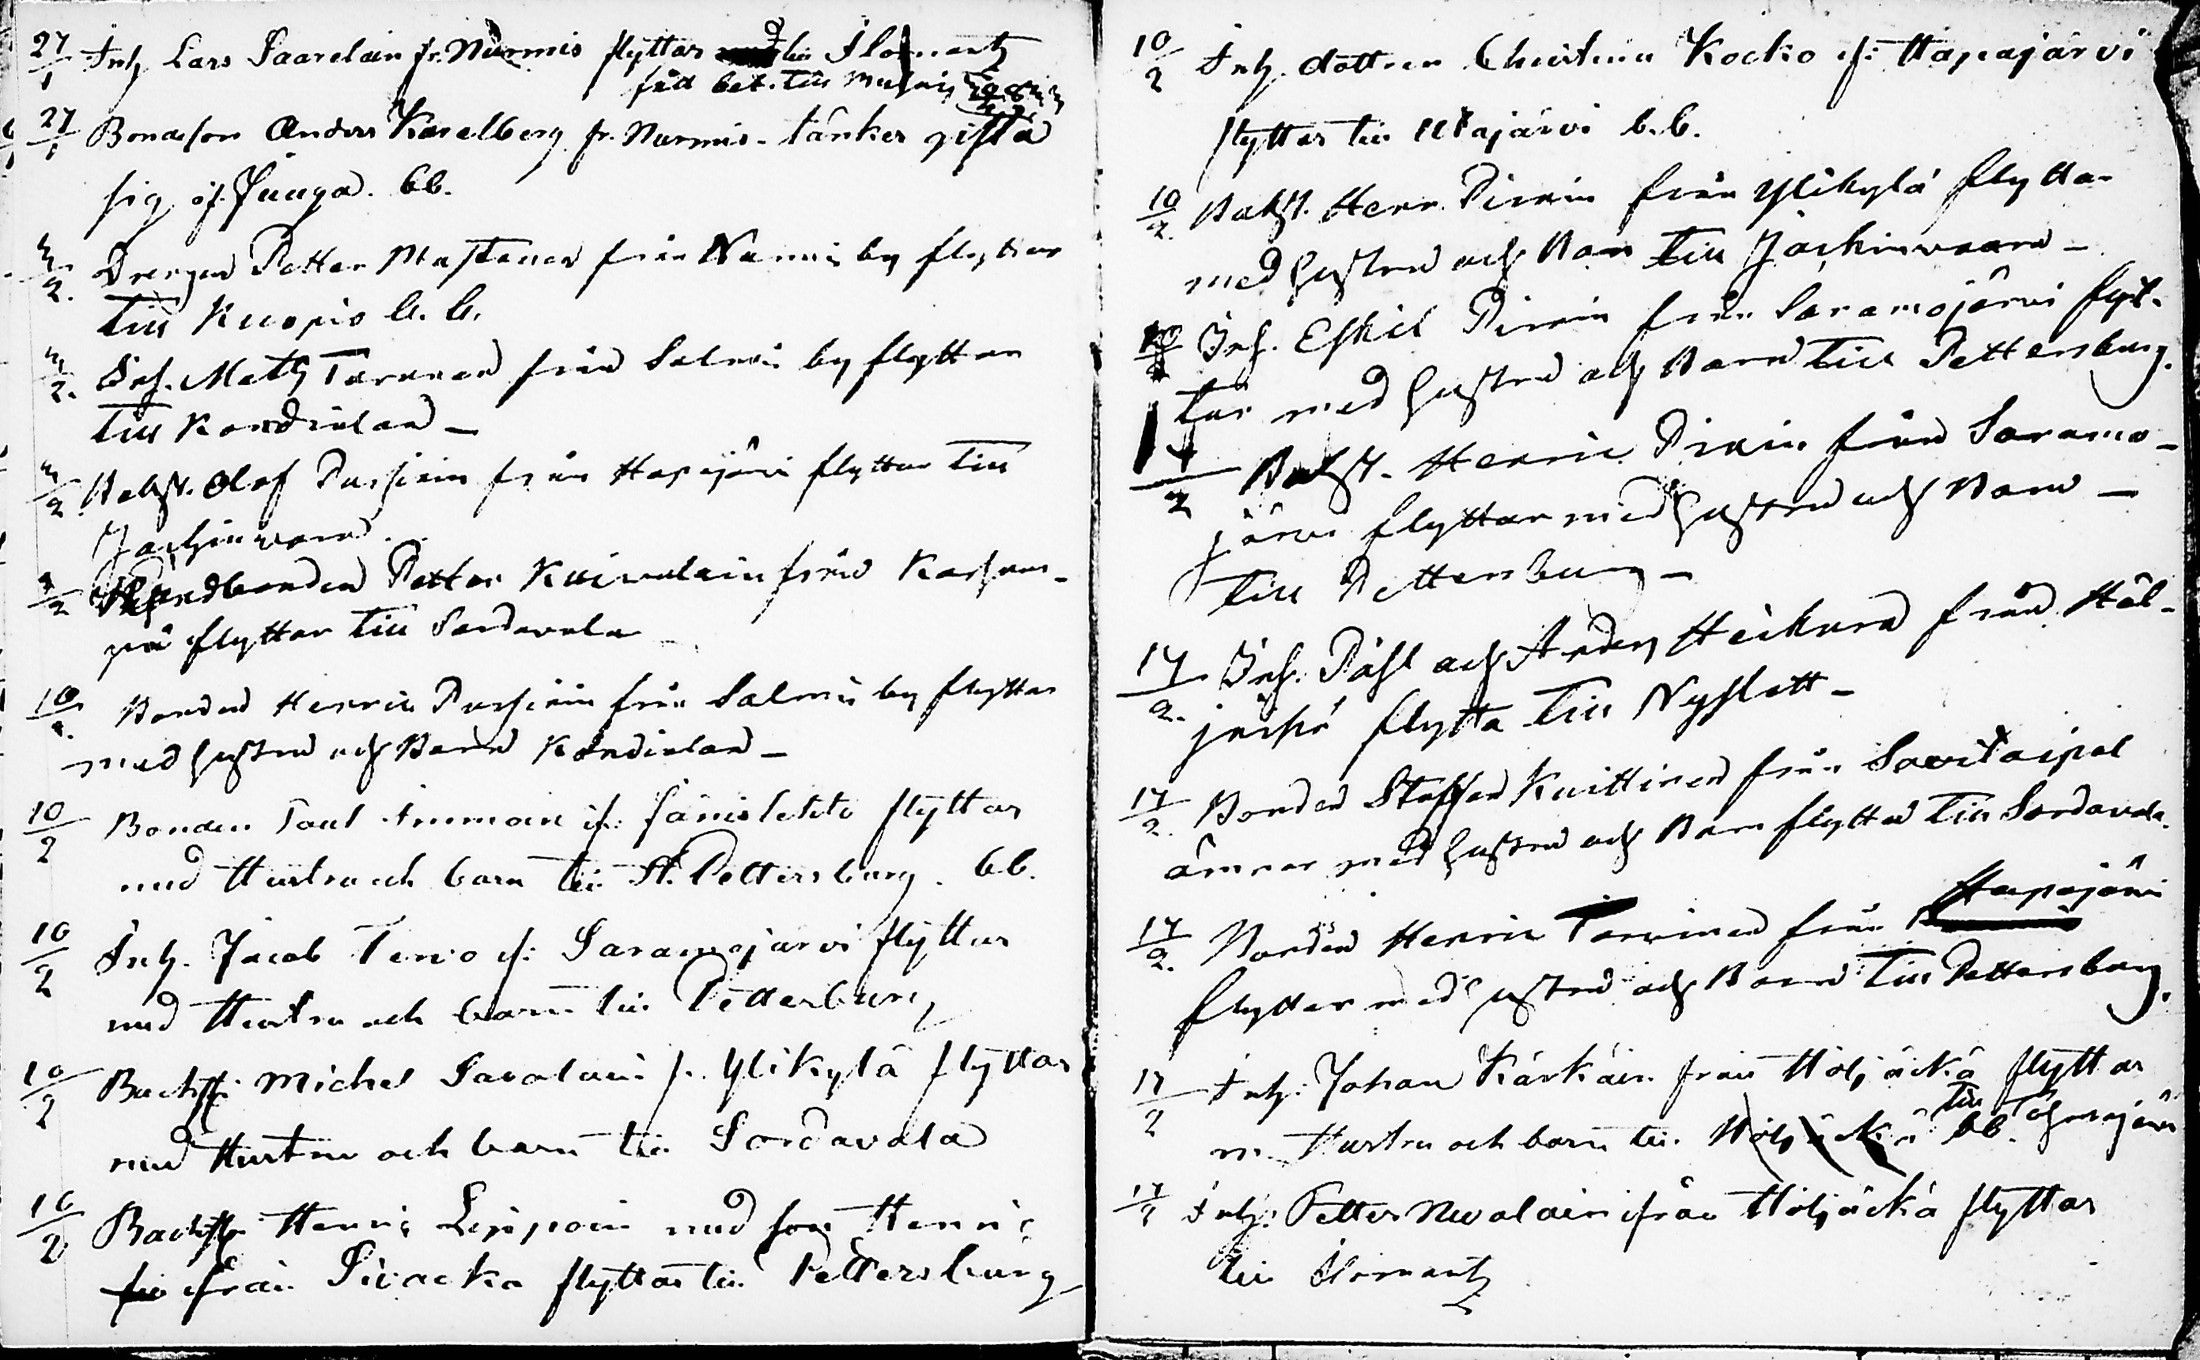 27/1 Inh. Lars Saarelain fr. Nurmis flyttar till Ilomantz
fåd bet. till
27/1 Bondeson Anders Karelberg fr. Nurmis tänker gifta
sig i Juuga. b.b.
3/2. Drengen Petter Mustonen från Nurmis by flyttar
till Kuopio b.b.
3/2. Inh. Math Tarvanen från Salmis by flyttar
till Kondielax –
3/2 Backst. Olof Pursiain från Hapajärvi flyttar till
Jackimvara.
3/2 Landbonden Petter Kuivalain från Karhun-
pä flyttar till Sordavala
10/2. Bonden Henric Pursiain från Salmis by flyttar
med hustru och Barn Kondielax –
10/2 Bonden Paul Immoin if: Sänislehto flyttar
med Hustru och barn till St. Pettersburg. bb.
10/2 Inh. Jacob Tervo if: Saramojärvi flyttar
med Hustru och barn till Petterburg
10/2 Backst: Michel Savolain fr. Ylikylä flyttar
med Hustru och barn till Sordavala
10/2 Backst: Henric Lippoin med son Henric
från Sivacka flyttar till Pettersburg
10/2 Inh. dottren Christina Kocko if: Hapajärvi
flyttar till Utajärvi b.b.
10/2. Backst. Henr. Pirain från Ylikylä flyttar
med hustru och Barn till Jackimvaara –
10/2 Inh. Eskil Pirain från Saramojärvi flyt-
tar med hustru och Barn till Pettersburg.
17/2 Backst. Henric Pirain från Saramo-
järvi flyttar med hustru och Barn –
till Pettersburg –
17/2. Inh. Påhl och Anders Heikura från Höl-
jäckä flytta till Nyslott –
17/2. Bonden Staffan Kuittinen från Savitaipal
ämnar med hustru och Barn flytta till Sordavala.
17/2. Bonden Henric Tarvinen från Hapajärvi
flyttar med hustru och Barn till Pettersburg.
17/2 Inh: Johan Kärkäin från Höljäckä flyttar
m. Hustru och barn till Höljäckä bb. till Tohmajärvi
17/2 Inh: Petter Nevalain ifrån Höljäckä flyttar
till Ilomantz